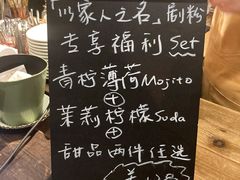 「以家人之名」剧粉
专享福利Set
青柠薄荷Mojito
+
茉莉柠檬Soda
+
甜品两件任选